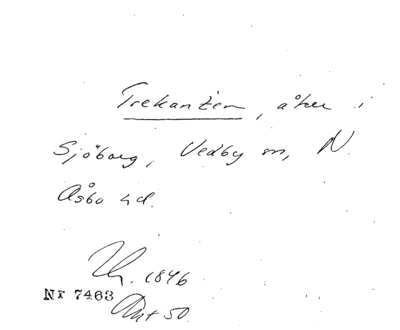 Trekanten, åker i
Sjöborg, Vedby sn, N.
Åsbo hd.
1846
Nr 7463
50